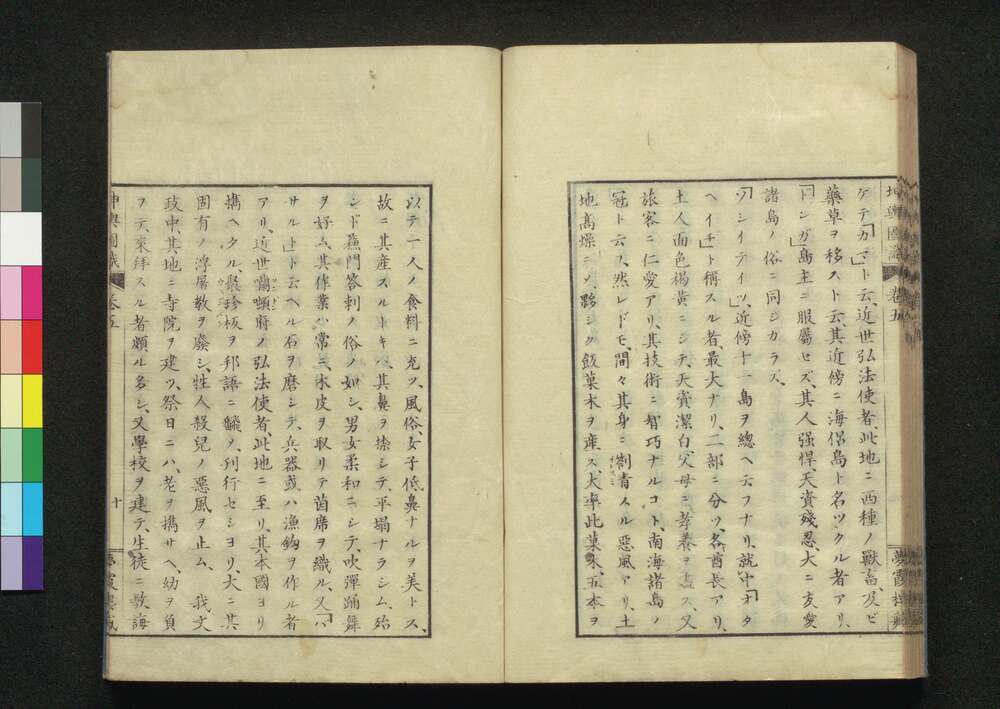 坤輿圖識 卷五
夢霞樓藏
ケテカマト云、近世弘法使者、此地ニ西種ノ獸畜、及ビ
藥草ヲ移スト云、其近傍ニ海侶島ト名ヅクル者アリ、
「トンガ」島主ニ服屬セズ、其人强悍、天資殘忍、大ニ友愛
諸島ノ俗ニ同ジカラズ、
「ソシイテイツ」、近傍十一島ヲ總ヘ云フナリ、就中「オタ
ヘイチ」ト稱スル者、最大ナリ、二部ニ分ツ、各酋長アリ、
土人面色褐黃ニシテ、天資潔白、父母ニ孝養ヲ ス、又
旅客ニ仁愛アリ、其技術ニ智巧ナルコト、南海諸島ノ
冠ト云フ、然レドモ、間々其身ニ劄青スル惡風アリ、土
地高燥ニ〆、夥シク飯菓木ヲ産ス、大率此菓木、五本ヲ
以テ一人ノ食料ニ充ツ、風俗女子低鼻ナルヲ美トス、
故ニ其産スルトキハ、其鼻ヲ捺シテ平塌ナラシム、殆
ンド 門答刺ノ俗ノ如シ、男女柔和ニシテ、吹彈踊舞
ヲ好ム、其作業ハ常ニ、木皮ヲ取リテ茵席ヲ織ル、又「バ
サルト」ト云ヘル石ヲ磨シテ、兵器或ハ漁鉤ヲ作ル者
アリ、近世 頓府ノ弘法使者、此地ニ至リ、其本國ヨリ
携ヘタル、聚珍板ヲ邦語ニ飜〆、刋行セシヨリ、大ニ其
固有ノ浮屠敎ヲ廢シ、牲人殺兒ノ惡風ヲ止ム、 我文
政中、其地ニ寺院ヲ建ツ、祭日ニハ、老ヲ携サヘ、幼ヲ負
フテ來拜スル者頗ル多シ、又學校ヲ建テ、生徒ニ敎誨
坤輿圖識 卷五
十
夢霞樓藏